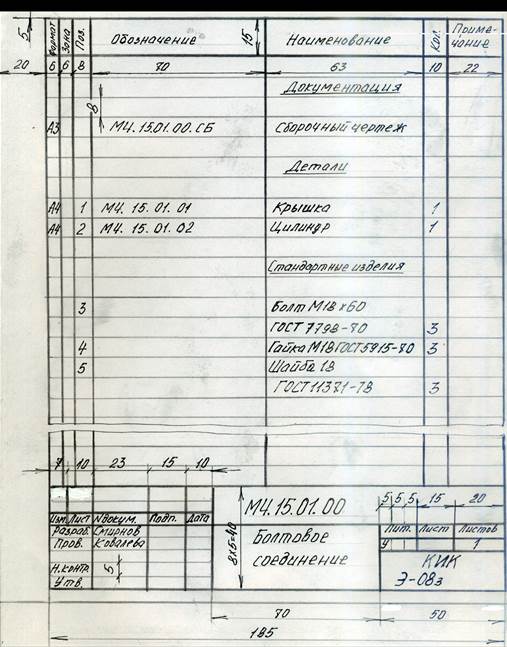 5
Формат
Зона
Поз.
Обозначение
15
Наименование
Кол.
Приме-
чание
20 6 6 8 70 63 10 22
Документация
8
А3 МЧ.15.01.00.СБ Сборочный чертеж
Детали
А4 1 МЧ. 15. 01. 01 Крышка 1
А4 2 МЧ. 15. 01. 02 Цилиндр 1
Стандартные изделия
3 Болт М18×60
ГОСТ 7798-70 3
4 Гайка М18 ГОСТ 5915-70 3
5 Шайба 18
ГОСТ 11371-78 3
7 10 23 15 10
МЧ.15.01.00
5 5 5 15 20
Изм. Лист №докум. Подп. Дата
Разраб. Смирнов
Пров. Ковалева
Н.контр.
Утв.
5
8х5=40
Болтовое
соединение
Лит. Лист Листов
У 1
КИК
Э-08з
70 50
185